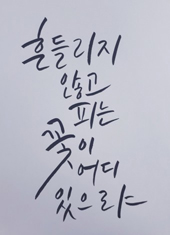 흔들리지
않고
피는
꽃이
어디
있으랴